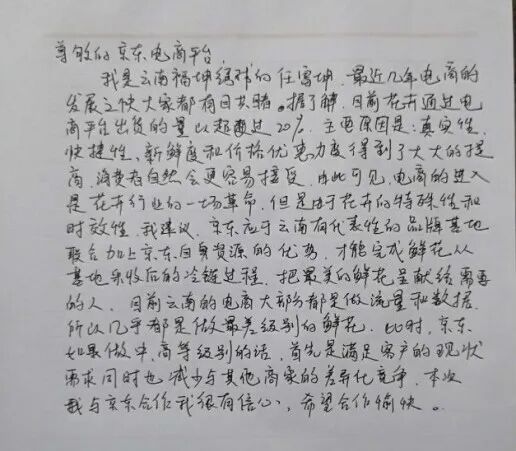 尊敬的京东电商平台
我是云南福坤编辑的任富坤，最近几年电商的
发展之快大家都有目共睹。据了解，目前花卉通过电
商平台出货的量以超通过20%，主要原因是：真实性，
快捷性、新鲜度和价格优惠力度得到了大大的提
高，消费者自然会更容易接受，由此可见，电商的进入
是花卉行业的一场革命，但是由于花卉的特殊性和
时效性，我建议，京东应于云南有代表性的品牌基地
联合加上京东自身资源的优势，才能完成鲜花从
基地采收后的冷链过程，把最美的鲜花呈献给需要
的人，目前云南的电商大部分都是做流量和数据，
所以几乎都是做最差级别的鲜花，此时，京东
如果做中，高等级别的话，首先是满足客户的现状
需求同时也减少与其他商家的差异化竞争，本次
我与京东合作我很有信心，希望合作愉快。